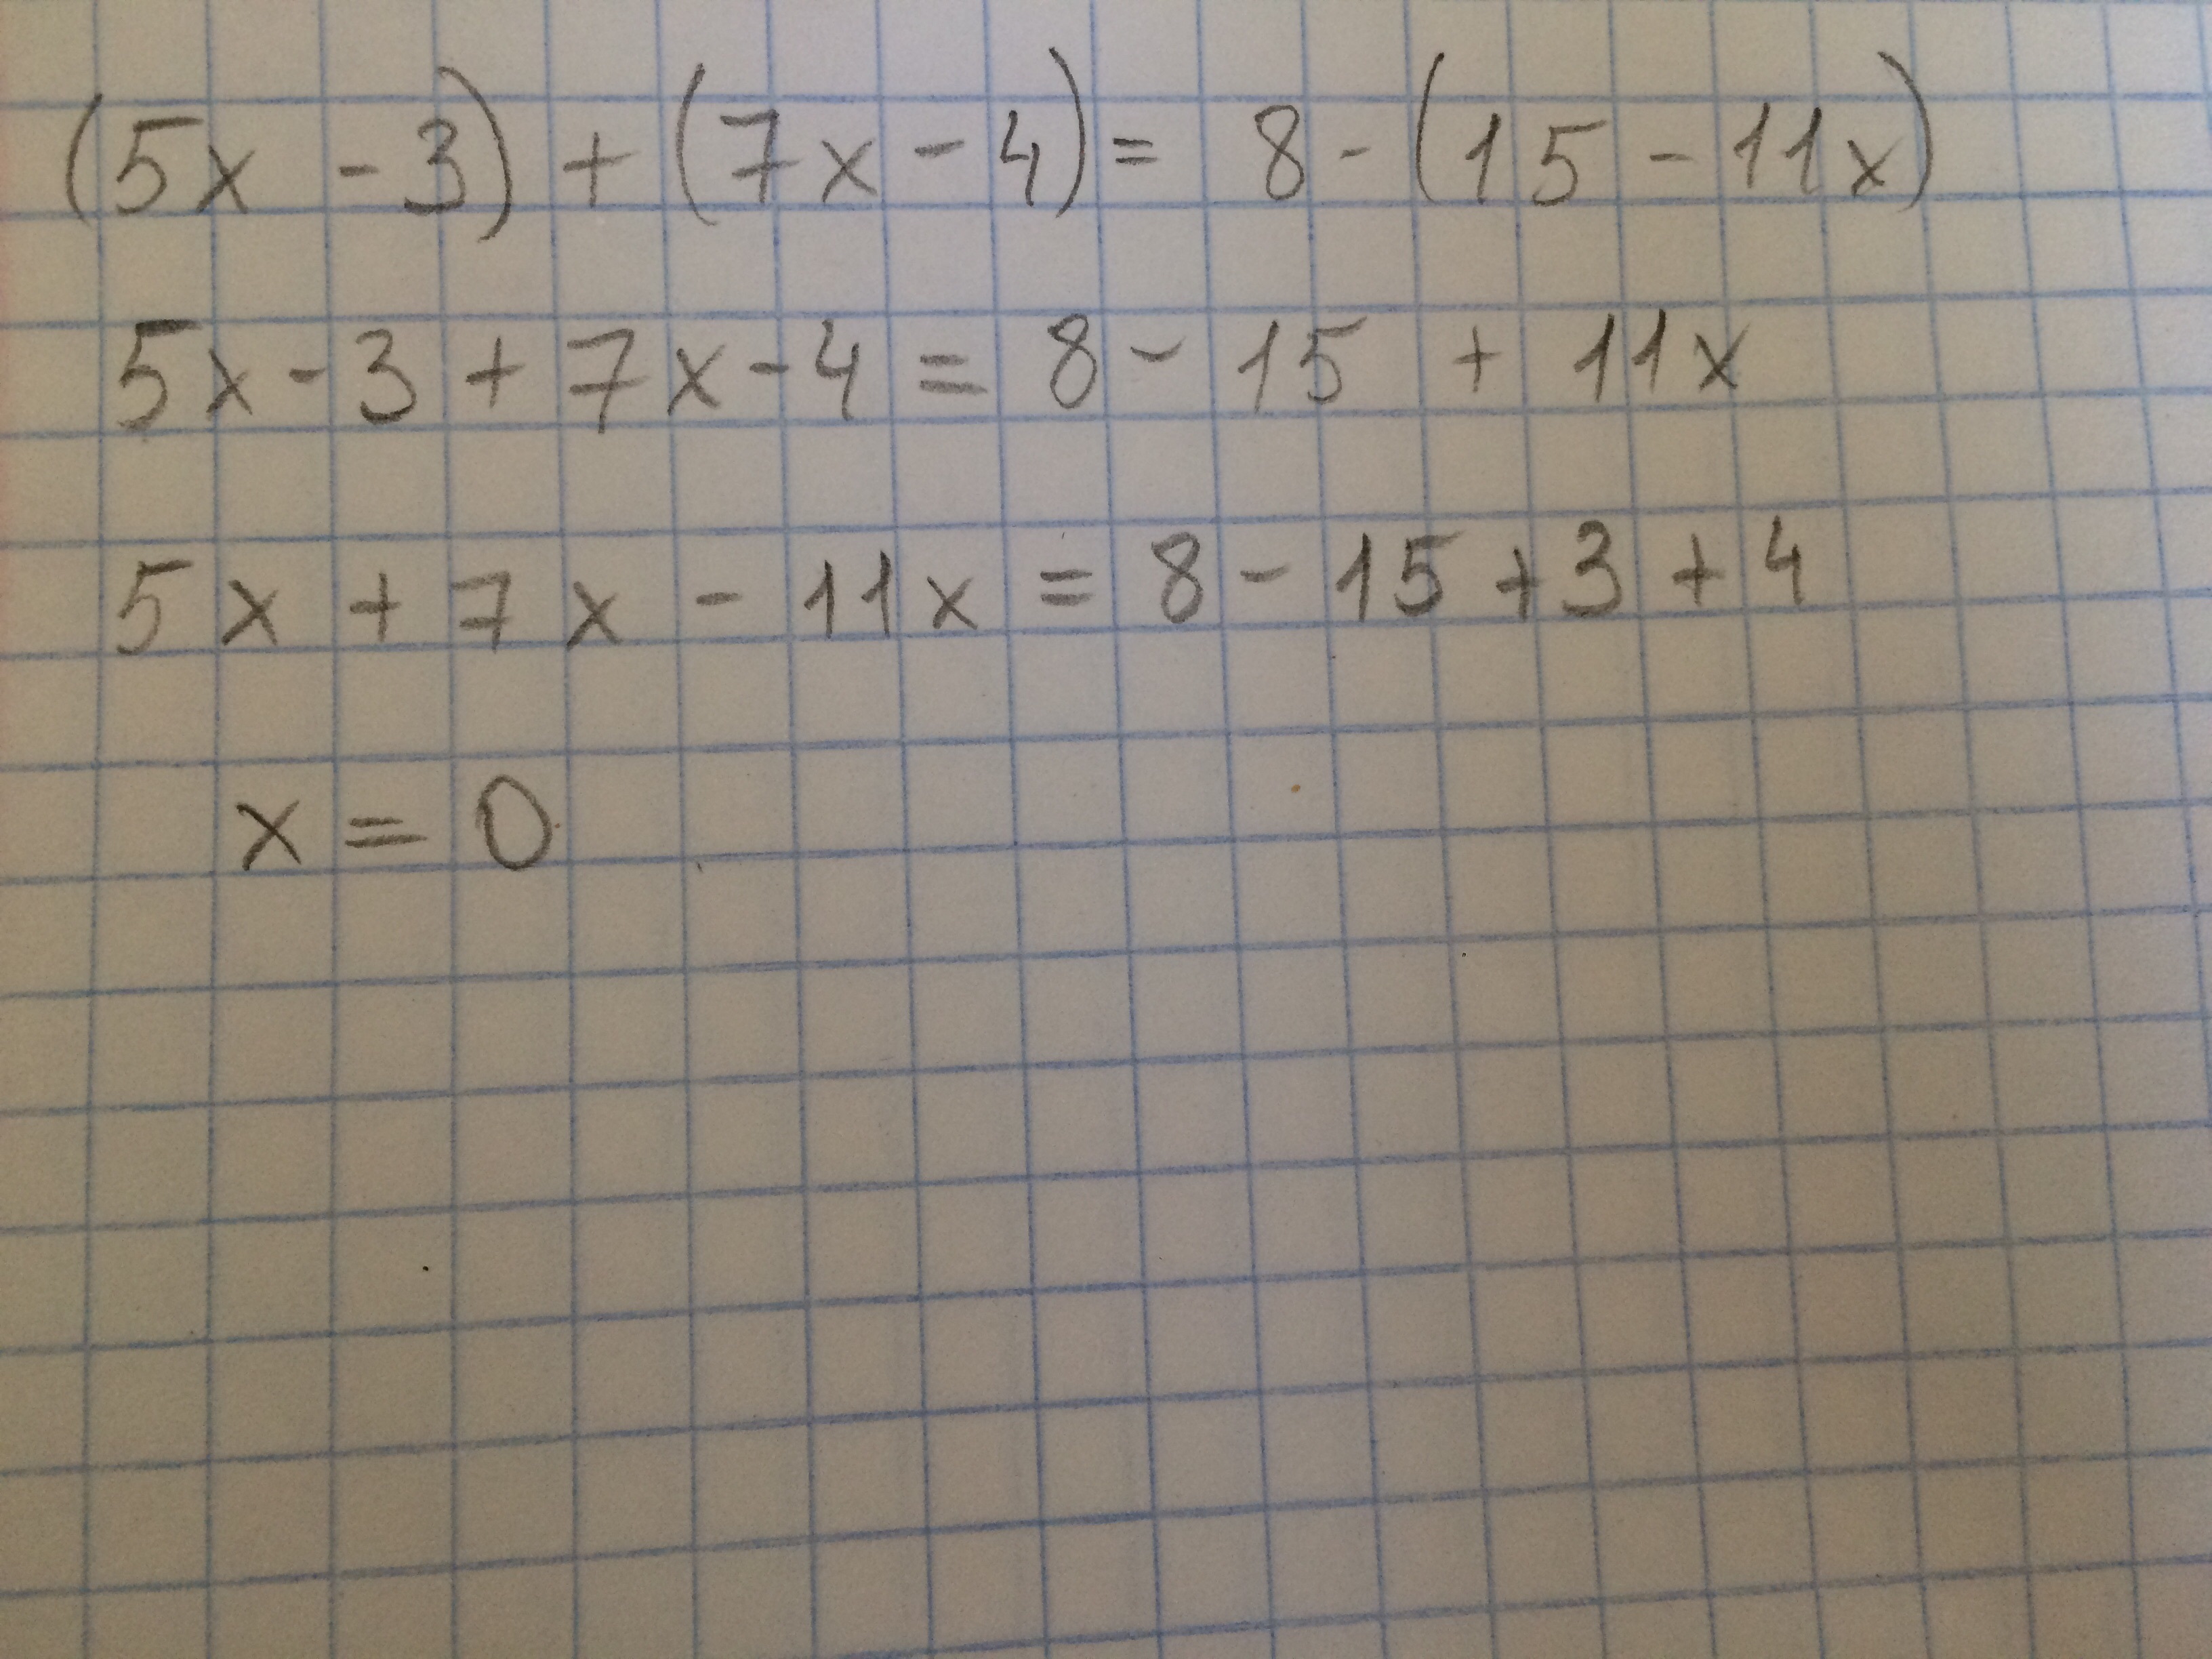 (5x - 3) + (7x - 4) = 8 - (15 - 11x)
5x - 3 + 7x - 4 = 8 - 15 + 11x
5x + 7x - 11x = 8 - 15 + 3 + 4
x = 0